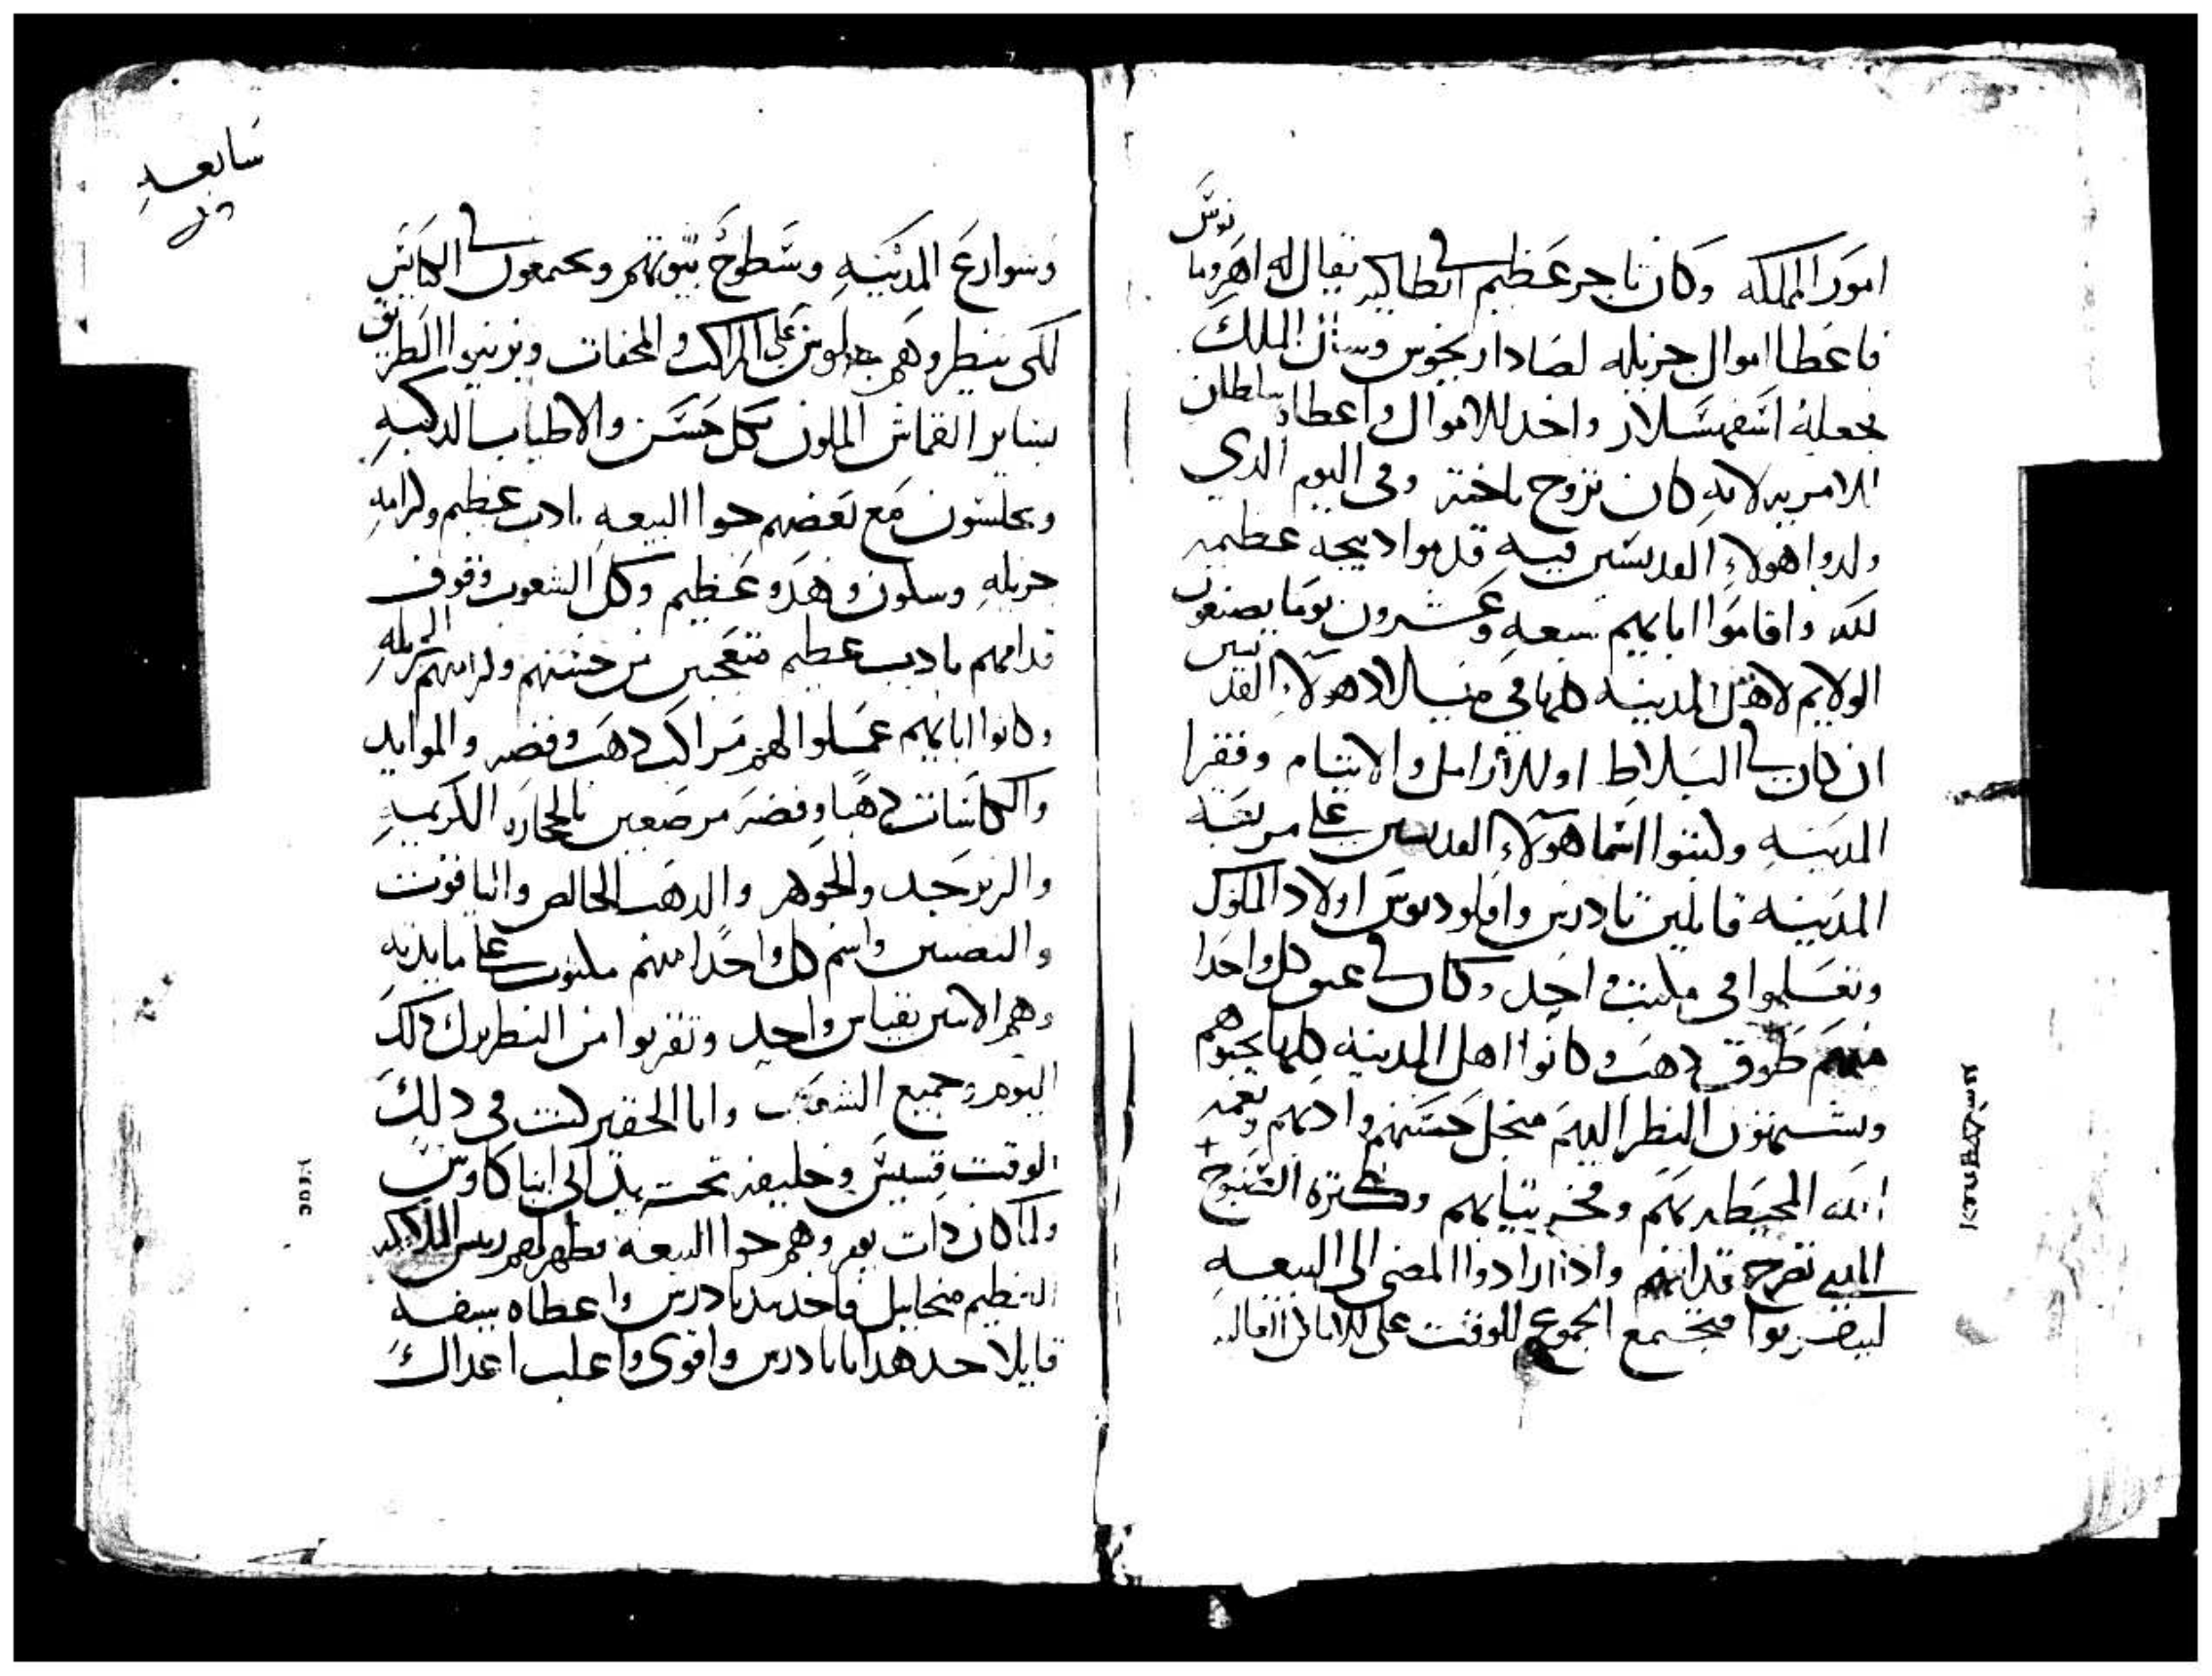 امور المملكه وكان تاجر عظيم في انطاكيه يقال له اهروما
نوس
فاعطا اموال جزيله لصادار يخوس وسال الملك
فجعله اسفهسلار واخد للاموال واعطاه سلطان
للامريه لانه كان تزوج باخته وفي اليوم الدي
ولدوا هولاء القديسين فيه قدموا دبيحه عظيمه
لله واقاموا ابايهم سبعه وعشرون يوما يصنعون
الولايم لاهل المدينه كلها في ميلاد هولاء القد
يسين
ان كان في البلاط او للارامل والايتام وفقرا
المدينه وكتبوا اسما هولاء القديسين على مر
المدينه قايلين تادرس واقلوديوس اولاد الملوك
وتعلموا في مكتب واحد وكان في عنق كل واحدا
منهم طوق دهب وكانوا اهل المدينه كلها يحبوهم
ويشتهون النظر اليهم منجل حسنهم وادبهم ونعمة
الله المحيطه بهم وفخر تيابهم وكتره
التي تصرح قدامهم وادا ارادوا المضى الى البيعه
ليتقربوا فيجتمع الجموع للوقت على الاماكن العاليه
سابعه
وشوارع المدينه وسطوح بيوتهم ويجتمعون في الكنايس
لكى ينظروهم جلوس على المراكب والمحفات ويزينوا الطريق
بساير القماش الملون بكل حسن والاطياب الدكيه
ويجلسون مع بعضهم جوا البيعه بادب عظيم وكرامه
جزيله وسكون وهدو عظيم وكل الشعوب وقوف
قدامهم بادب عظيم متعجبين من حسنهم وكرامتهم الجزيله
وكانوا ابايهم عملوا لهم مراكب دهب وفضه والموايد
والكاسات دهبا وفضه مرصعين بالحجاره الكريمه
والزبرجد والجوهر والدهب الخالص والياقوت
واسم كل واحدا منهم مكتوب على مايدته
وهم الاتنين بقياس واحد وتقربوا من البطريرك دلك
اليوم وجميع الشعب وانا الحقير كنت في دلك
الوقت قسيس وخليفه تحت يد ابى انبا كاوس
ولما كان دات يوم وهم جوا البيعه فظهر لهم رييس الملايكه
العظيم ميخاييل فاخد بيد تادرس واعطاه سيف
قايلا خد هدا يا تادرس واقوى واغلب اعداك